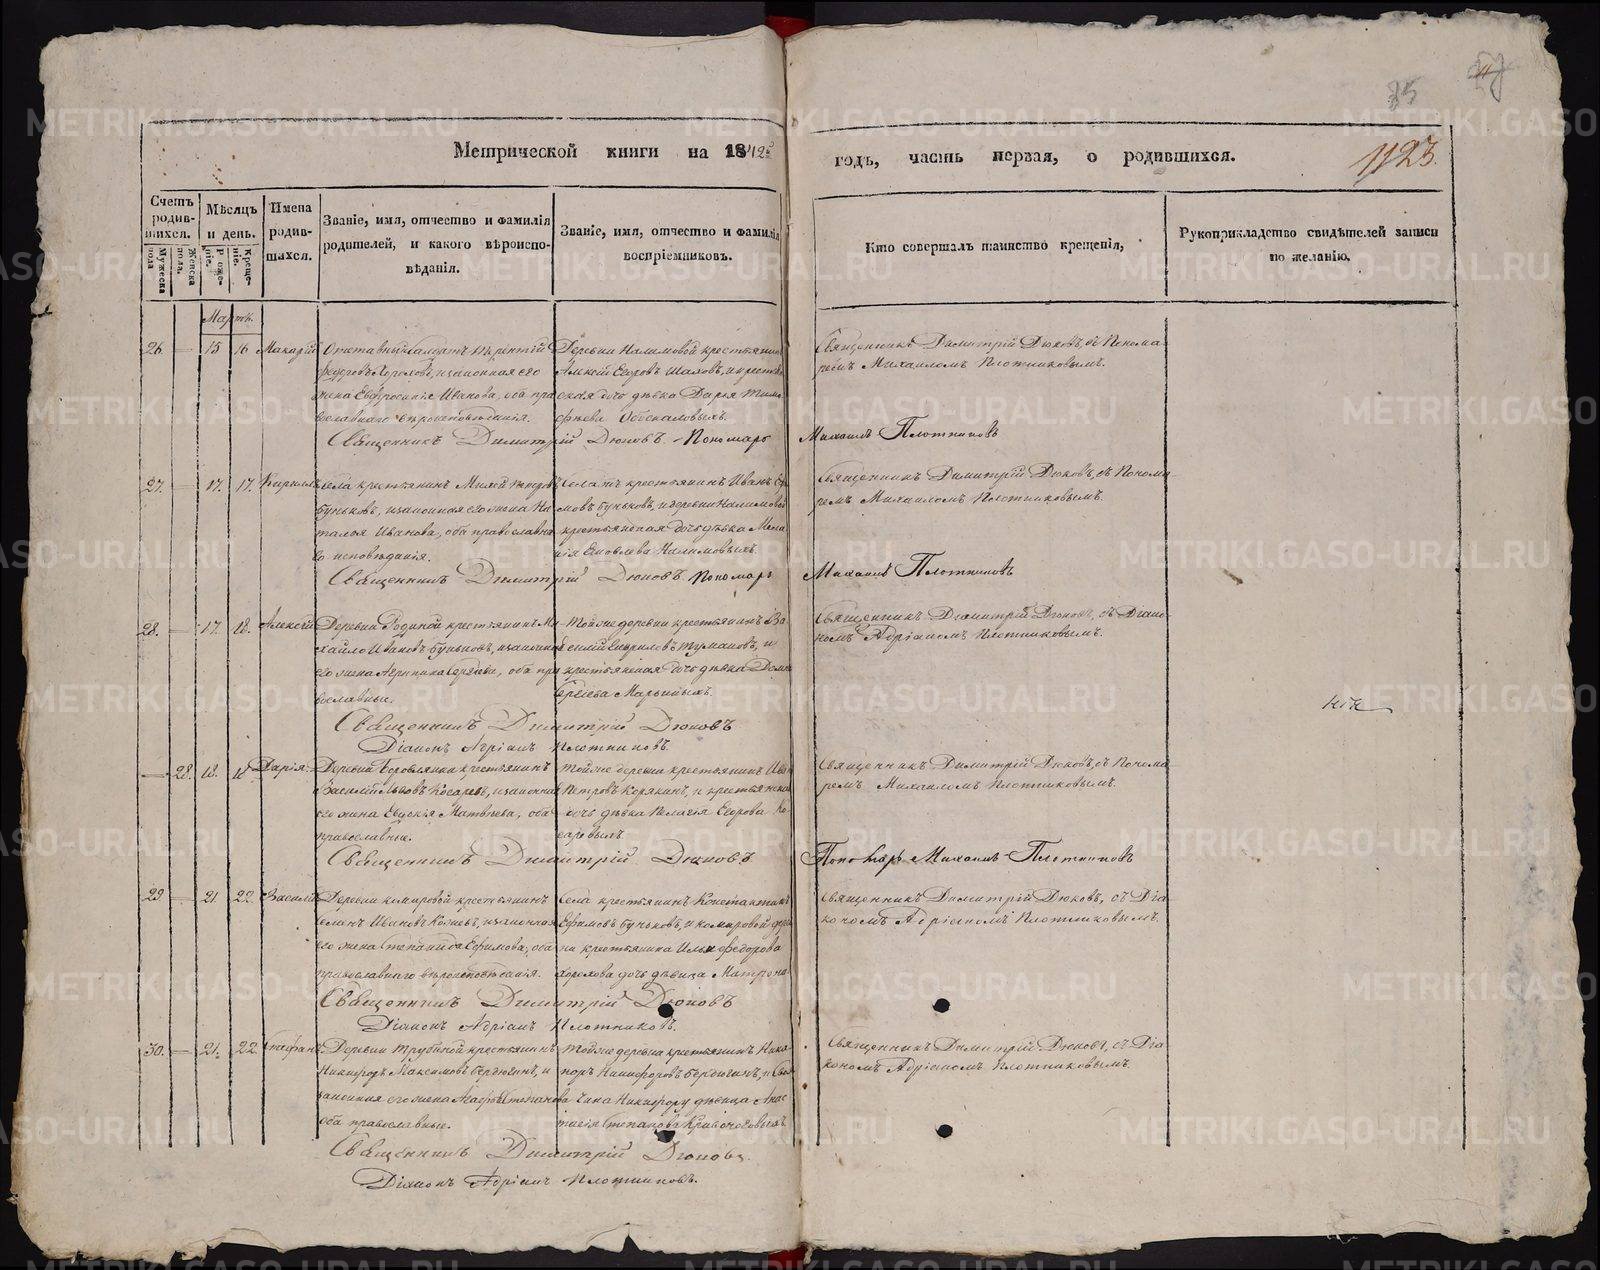 35
1123.
Метрической книги на 1842й годъ, часть первая, о родившихся.
Счетъ родившихся.
Мужеска пола.
Женска пола.
Мѣсяцъ и день.
Рожденіе.
Крещеніе.
Имена родившихся.
Званіе, имя, отчество и фамилія родителей, и какого вѣроисповѣданія.
Званіе, имя, отчество и фамилія воспріемниковъ.
Кто совершалъ таинство крещенія,
Рукоприкладство свидѣтелей записи по желанію.
Мартъ.
26. — 15 16 Макарій
Отставный солдатъ
Федоровъ Хороховъ, и законная его
жена Евфросинія Иванова, оба пра
вославнаго вѣроисповѣданія.
Деревни Налимовой крестьянинъ
Алексѣй Егоровъ
ская дочь дѣвка Дарья Тимо
фѣева
Священникъ Димитрій Дюковъ, съ Понома
ремъ Михаиломъ Плотниковымъ.
Священникъ Димитрій Дюковъ Пономарь Михаилъ Плотниковъ
27. — 17. 17. Кириллъ
Села крестьянинъ
Буньковъ, и законная его жена На
талья Иванова, оба православна
го исповѣданія.
Села тъ крестьянинъ Иванъ
мовъ Буньковъ, и деревни Налимовой
крестьянская дочь дѣвка Мела
нія Яковлева Налимовыхъ.
Священникъ Димитрій Дюковъ, съ Понома
ремъ Михаиломъ Плотниковымъ.
Священникъ Димитрій Дюковъ. Пономарь Михаилъ Плотниковъ
28. — 17. 18. Алексѣй
Деревни Родиной крестьянинъ Ми
хайло Ивановъ Буньковъ, и законная
его жена Агрипина Сергѣева, оба пра
вославные.
Тойже деревни крестьянинъ Ва
силій Гавриловъ Тумаковъ, и
крестьянская дочь дѣвка Домна
Сергѣева Марьиныхъ.
Священникъ Димитрій Дюковъ, съ Діако
номъ Адріаномъ Плотниковымъ.
Священникъ Димитрій Дюковъ
Діаконъ Адріанъ Плотниковъ.
— 28. 18. 18 Дарія.
Деревни Боровлянки крестьянинъ
Василій Львовъ Косаревъ, и законная
его жена Евдокія Матвѣева, оба
православные.
Тойже деревни крестьянинъ Иванъ
Петровъ Корякинъ, и крестьянская
дочь дѣвка Пелагія Егорова Ко
саревыхъ
Священникъ Димитрій Дюковъ, съ Понома
ремъ Михаиломъ Плотниковымъ.
Священникъ Димитрій Дюковъ Пономарь Михаилъ Плотниковъ
29 — 21 22. Василій
Деревни Комаровой крестьянинъ
Ивановъ и законная
его жена Степанида Ефимова, оба
православнаго вѣроисповѣданія.
Села крестьянинъ Константинъ
Ефимовъ Буньковъ, и Комаровой дерев
ни крестьянина Ильи Федорова
Хорохова дочь дѣвица Матрона
Священникъ Димитрій Дюковъ, съ Діа
кономъ Адріаномъ Плотниковымъ.
Священникъ Димитрій Дюковъ
Діаконъ Адріанъ Плотниковъ.
30. — 21. 22. Стефанъ
Деревни Трубиной крестьянинъ
Никифоръ Максимовъ Бердюгинъ, и
законная его жена Агафья Степанова
оба православные.
Тойже деревни крестьянинъ Ника
норъ Никифоровъ Бердюгинъ, и
дѣвица Анас
тасія Степанова Кривоноговыхъ
Священникъ Димитрій Дюковъ, съ Діа
кономъ Адріаномъ Плотниковымъ.
Священникъ Димитрій Дюковъ.
Діаконъ Адріанъ Плотниковъ.
METRIKI.GASO-URAL.RU